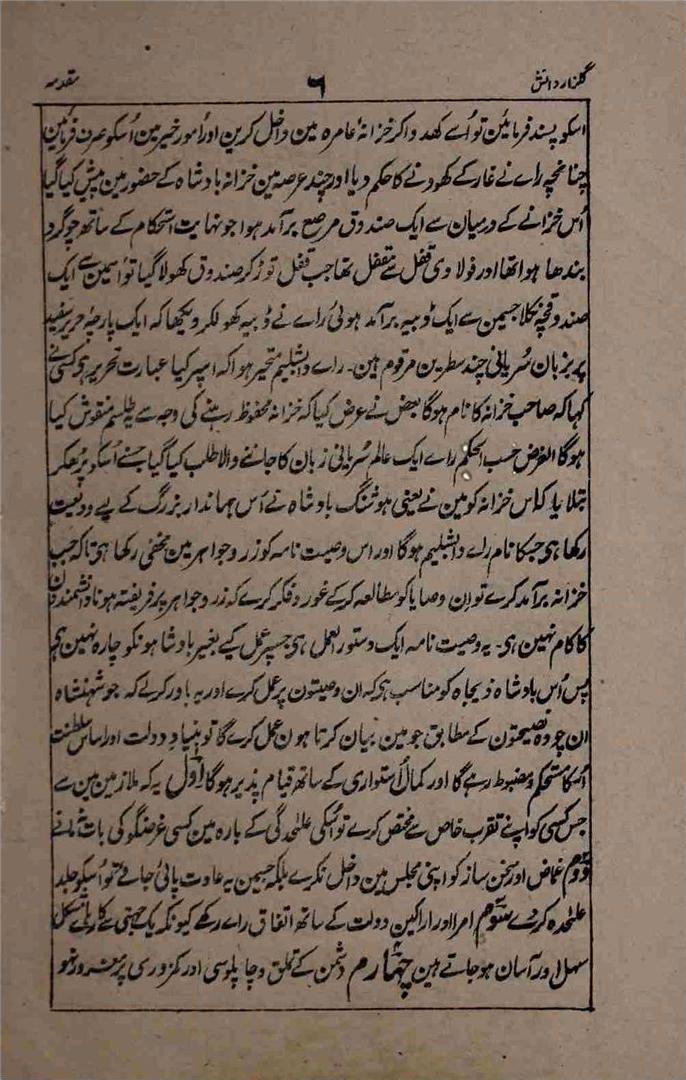 گلزار دانش ۶ مقدمہ
اسکو پسند فرمائین تو اُسے کھدواکر خزانۂ عامرہ مین داخل کرین اور اُمور خیر مین اُسکو صرف فرمائین
چنانچہ راے نے غار کے کھودنے کا حکم دیا اور چند عرصہ مین خزانہ بادشاہ کے حضور مین پیش کیا گیا
اُس خزانے کے درمیان سے ایک صندوق مرصع برآمد ہوا جو نہایت استحکام کے ساتھ چوگرد
بندھا ہوا تھا اور فولادی قفل سے مقفل تھا جب قفل توڑ کر صندوق کھولا گیا تو اُسمین سے ایک
صندوقچہ نکلا جسمین سے ایک ڈبیہ برآمد ہوئی راے نے ڈبیہ کھولکر دیکھا کہ ایک پارچۂ حریر سفید
پر بزبان سُریانی چند سطرین مرقوم ہین۔ راے دابشلیم متحیر ہوا کہ اسپر کیا عبارت تحریر ہی کسی نے
کہا کہ صاحب خزانہ کا نام ہوگا بعض نے عرض کیا کہ خزانہ محفوظ رہنے کی وجہ سے طلسم منقوش کیا
ہوگا الغرض حسب الحکم راے ایک عالم سُریانی زبان کا جاننے والا طلب کیا گیا جسنے اُسکو پڑھکر
بتلایا کہ اس خزانہ کو مین نے یعنی ہوشنگ بادشاہ نے اُس جہاندار بزرگ کے لیے ودیعت
رکھا ہی جسکا نام راے دابشلیم ہوگا اور اس وصیت نامہ کو زر و جواہر مین مخفی رکھا ہی تاکہ جب
خزانہ برآمد کرے تو اِن وصایا کو مطالعہ کرکے غور و فکر کرے کہ زر و جواہر پر فریفتہ ہونا دانشمندون
کا کام نہین ہی۔ یہ وصیت نامہ ایک دستور العمل ہی جسپر عمل کیے بغیر بادشاہونکو چارہ نہین ہی
پس اُس بادشاہ ذیجاہ کو مناسب ہی کہ ان وصیتون پر عمل کرے اور یہ باور کرلے کہ جو شہنشاہ
ان چودہ نصیحتون کے مطابق جو مین بیان کرتا ہون عمل کرے گا تو بنیادِ دولت اور اساس سلطنت
اُسکا مستحکم و مضبوط رہے گا اور کمال اُستواری کے ساتھ قیام پذیر ہوگا اوّل یہ کہ ملازمین مین سے
جس کسی کو اپنے تقرب خاص سے مختص کرے تو اُسکی علٰحدگی کے بارہ مین کسی غرضگو کی بات نہ مانے
دوم غماض اور سخن ساز کو اپنی مجلس مین داخل نکرے بلکہ جسمین یہ عادت پائی جائے تو اُسکو جلد
علٰحدہ کر دے سوم امرا اور اراکین دولت کے ساتھ اتفاق راے رکھے کیونکہ یک جہتی سے کارہائے مشکل
سہل اور آسان ہو جاتے ہین چہارم دشمن کے تملق و چاپلوسی اور کمزوری پر مغرور نہو